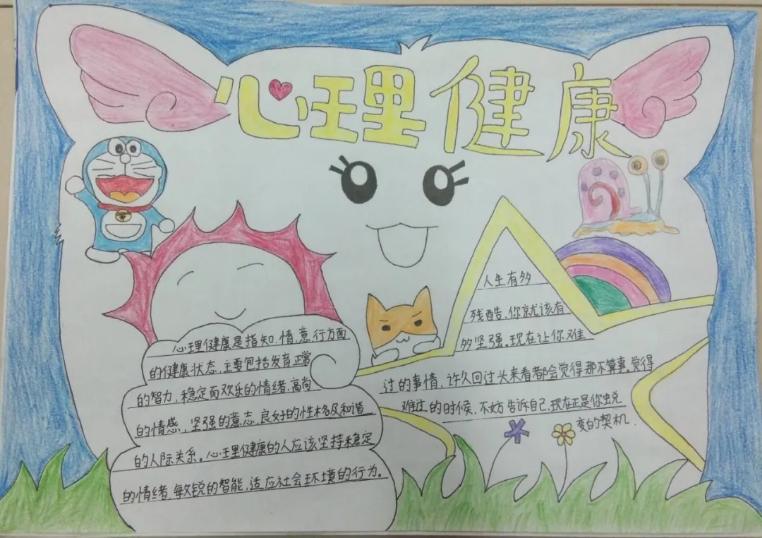 心理健康
心理健康是指知、情、意、行方面
的健康状态,主要包括发育正常
的智力,稳定而欢乐的情绪,高尚
的情感,坚强的意志,良好的性格及和谐
的人际关系。心理健康的人应该坚持稳定
的情绪,敏锐的智能,适应社会环境的行力。
人生有多
残酷,你就该有
多坚强。现在让你难
过的事情,许久回过头来看都会觉得那不算事。觉得
难过的时候,不妨告诉自己,现在正是你蜕
变的契机